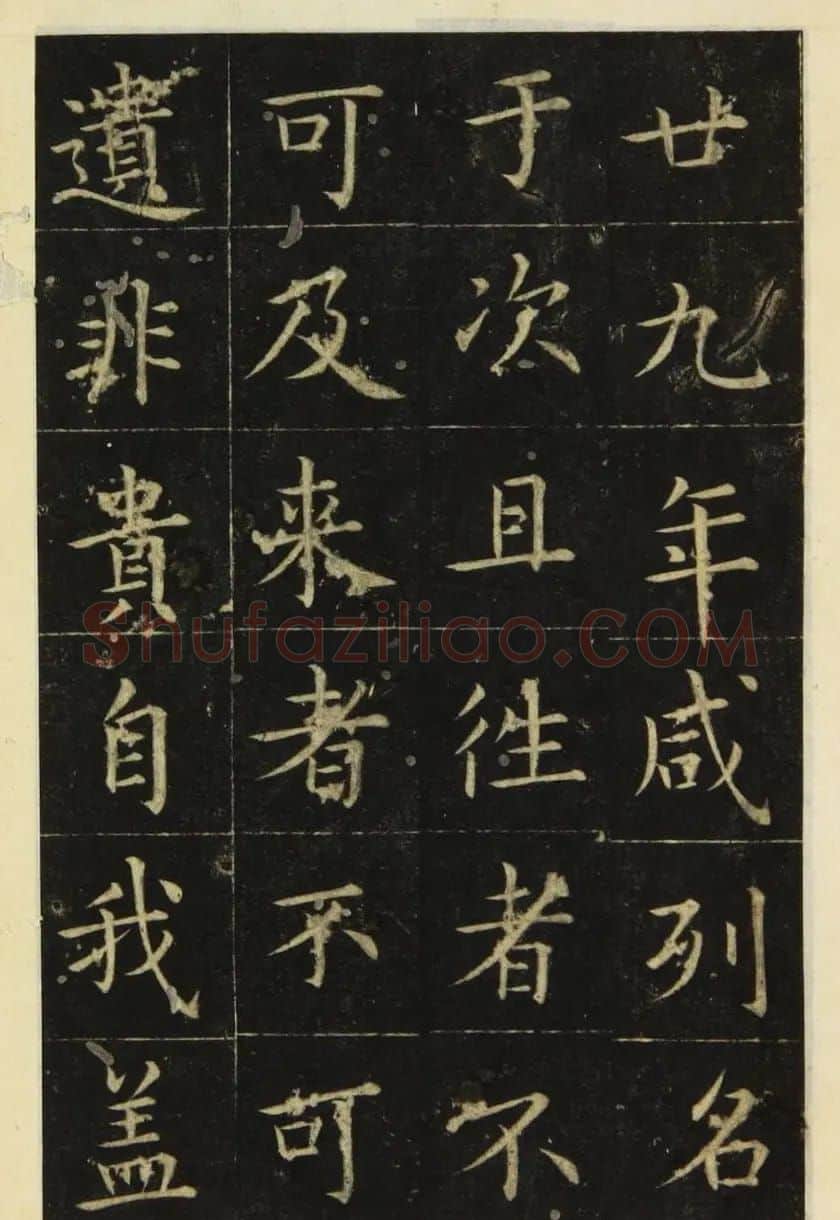 廿九年咸列名
于次且徃者不
可及来者不可
遺非貴自我盖
Shufaziliao.COM